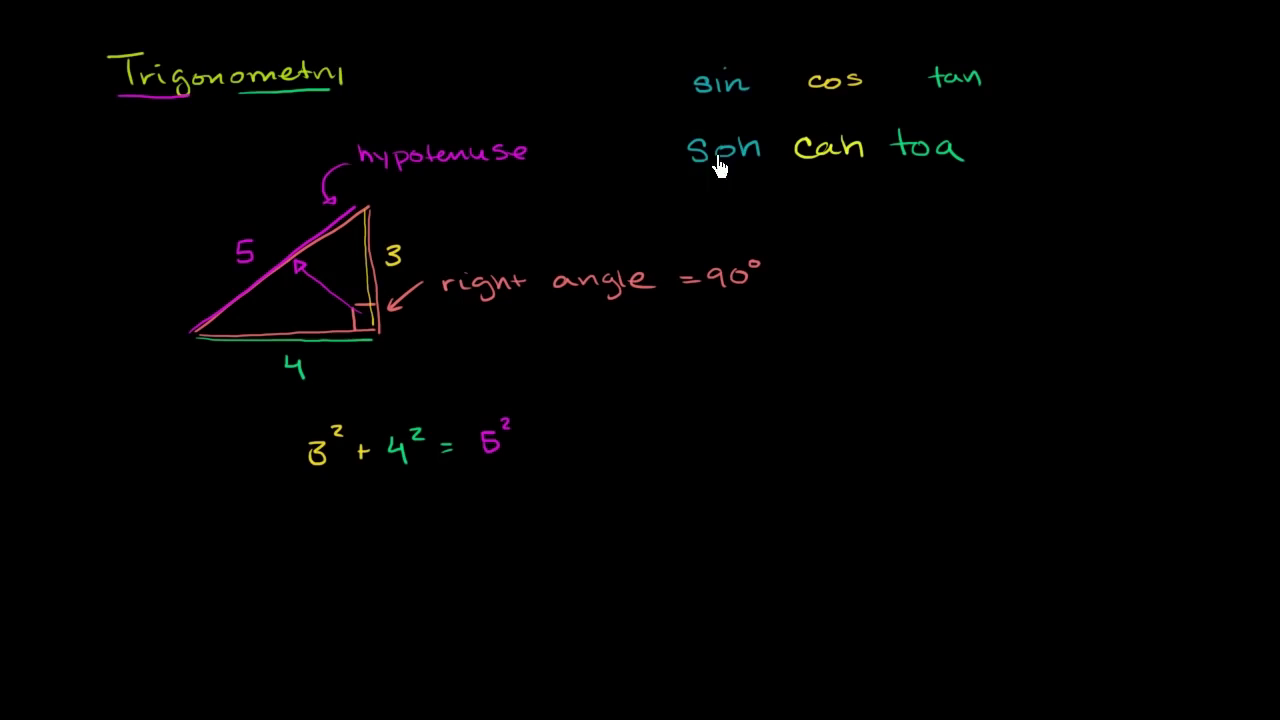 Trigonometry
sin cos tan
soh cah toa
hypotenuse
5
3
right angle = 90°
4
3² + 4² = 5²